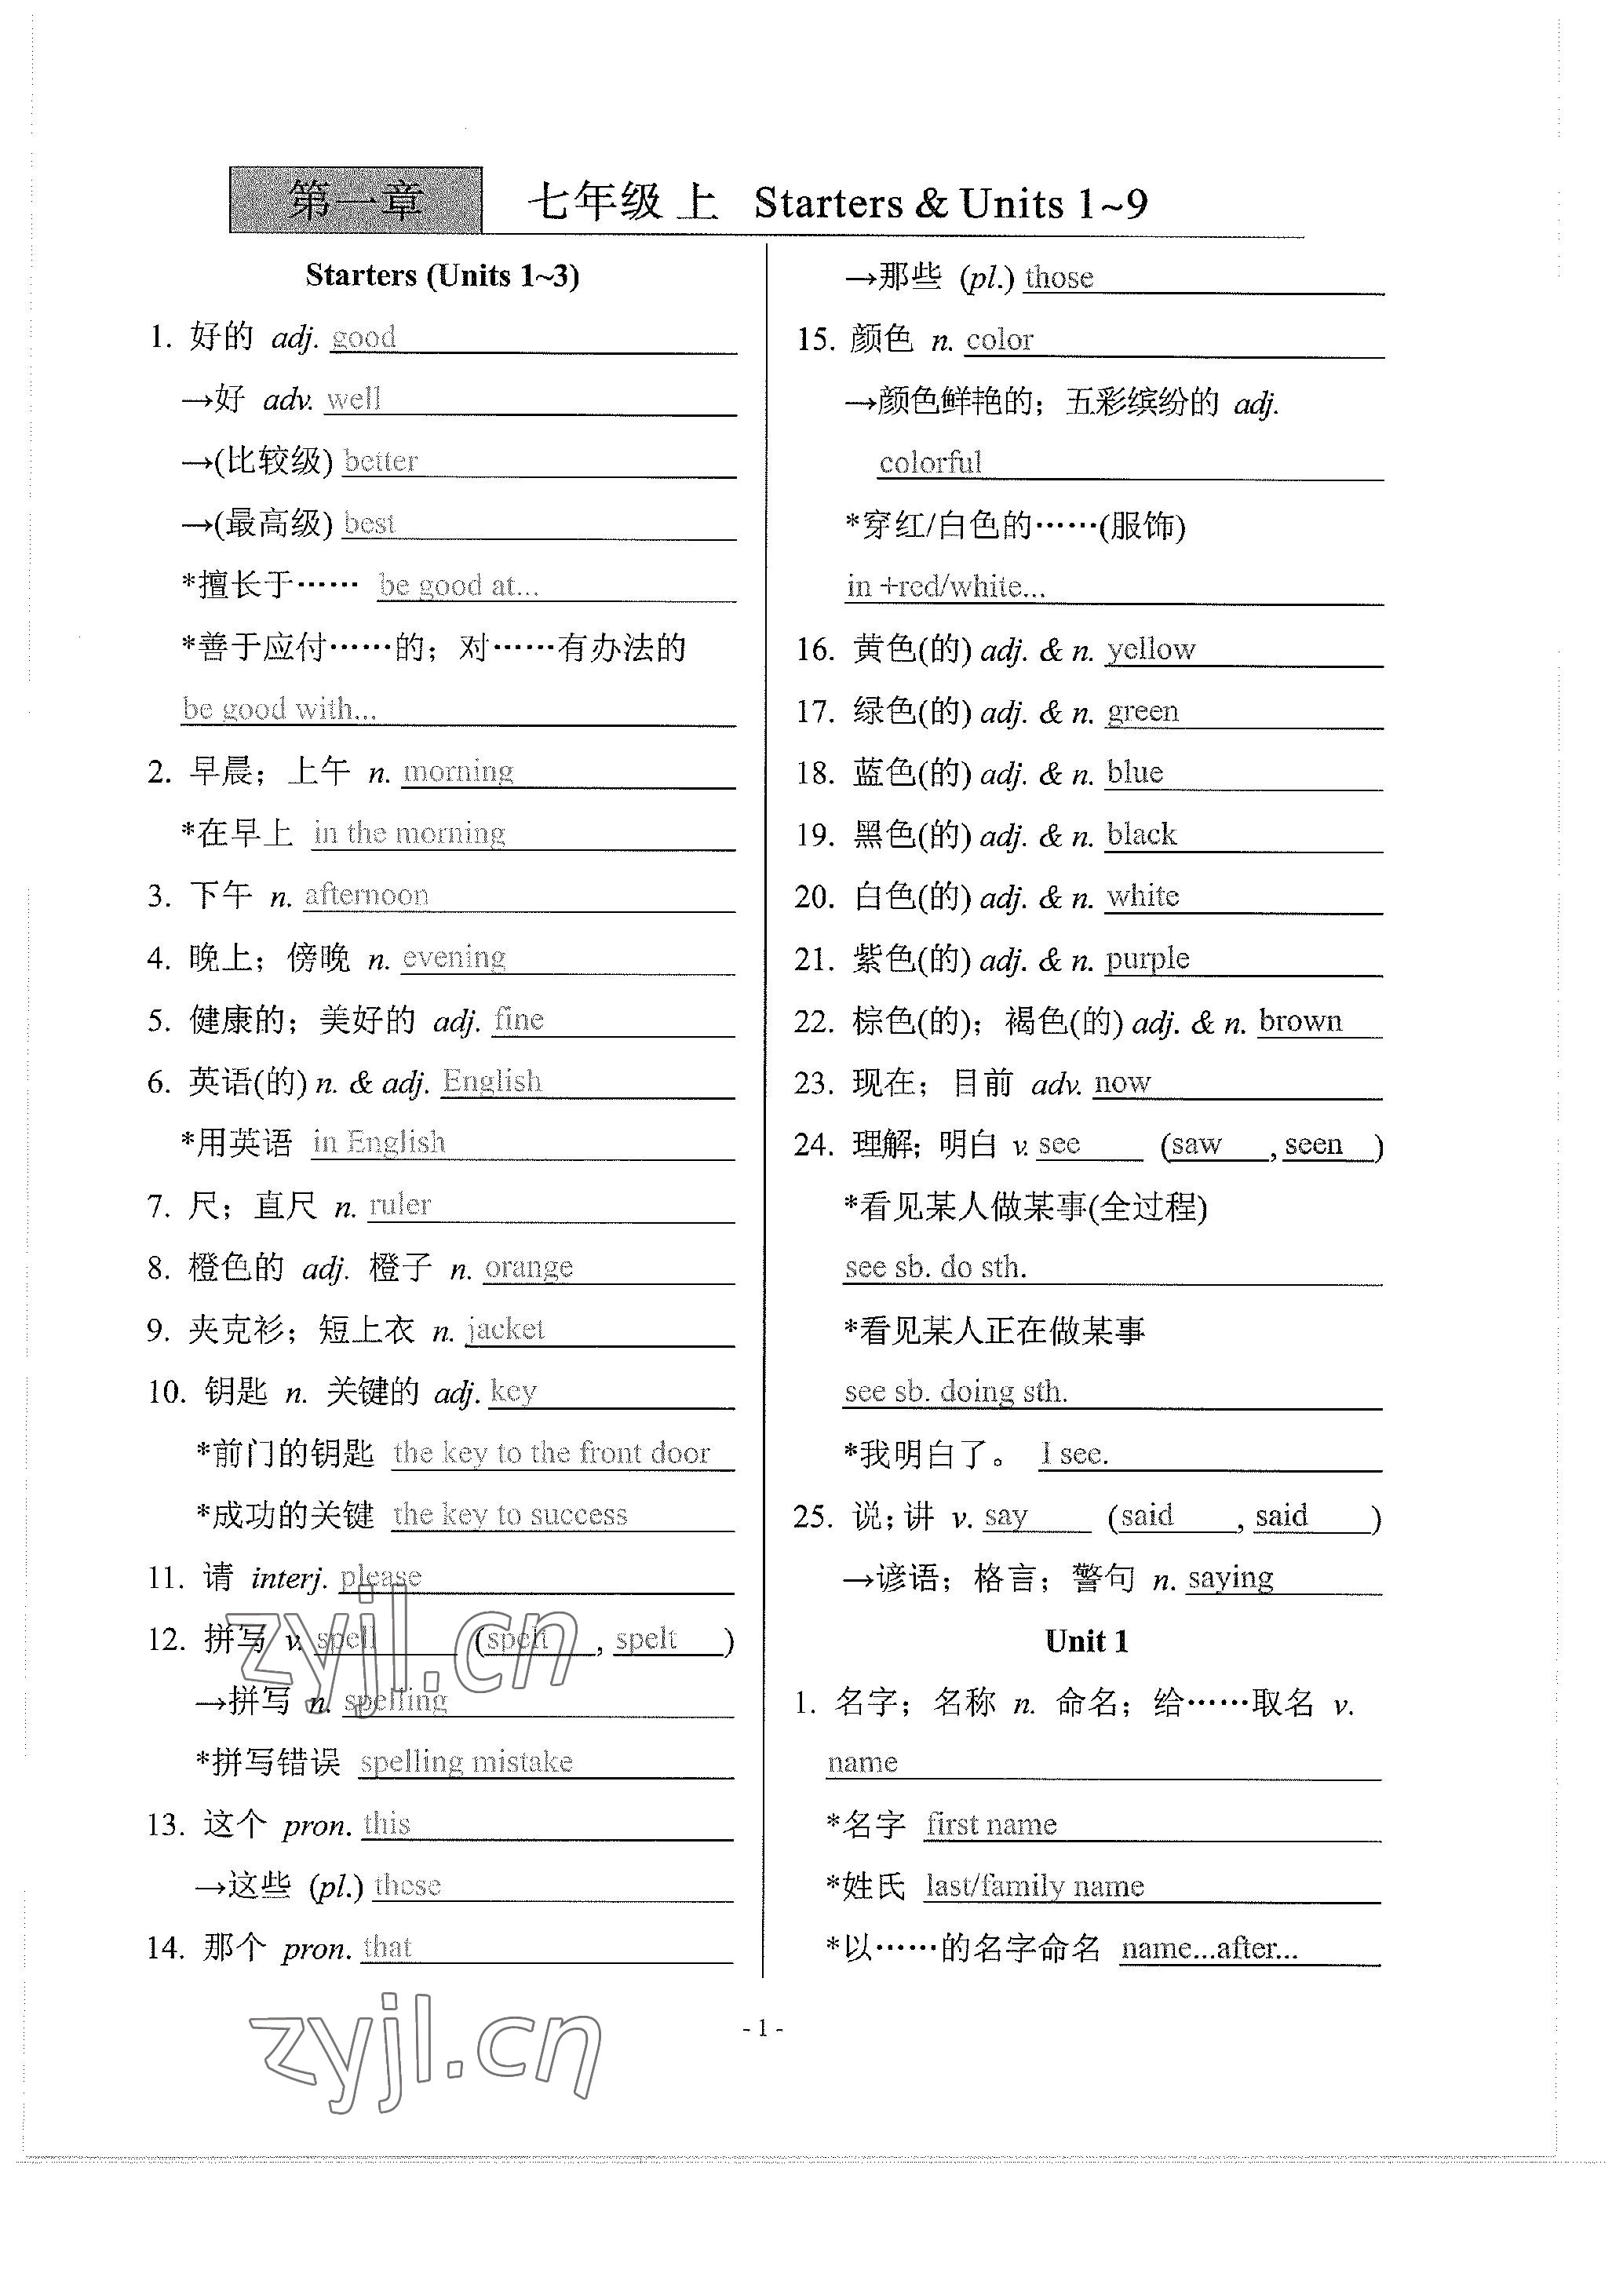 第一章 七年级 上 Starters & Units 1~9
Starters (Units 1~3)
1. 好的 adj. good
→好 adv. well
→(比较级) better
→(最高级) best
*擅长于…… be good at...
*善于应付……的；对……有办法的
be good with...
2. 早晨；上午 n. morning
*在早上 in the morning
3. 下午 n. afternoon
4. 晚上；傍晚 n. evening
5. 健康的；美好的 adj. fine
6. 英语(的) n. & adj. English
*用英语 in English
7. 尺；直尺 n. ruler
8. 橙色的 adj. 橙子 n. orange
9. 夹克衫；短上衣 n. jacket
10. 钥匙 n. 关键的 adj. key
*前门的钥匙 the key to the front door
*成功的关键 the key to success
11. 请 interj. please
12. 拼写 v. spell (spelt, spelt)
→拼写 n. spelling
*拼写错误 spelling mistake
13. 这个 pron. this
→这些 (pl.) these
14. 那个 pron. that
→那些 (pl.) those
15. 颜色 n. color
→颜色鲜艳的；五彩缤纷的 adj.
colorful
*穿红/白色的……(服饰)
in +red/white...
16. 黄色(的) adj. & n. yellow
17. 绿色(的) adj. & n. green
18. 蓝色(的) adj. & n. blue
19. 黑色(的) adj. & n. black
20. 白色(的) adj. & n. white
21. 紫色(的) adj. & n. purple
22. 棕色(的)；褐色(的) adj. & n. brown
23. 现在；目前 adv. now
24. 理解；明白 v. see (saw, seen)
*看见某人做某事(全过程)
see sb. do sth.
*看见某人正在做某事
see sb. doing sth.
*我明白了。 I see.
25. 说；讲 v. say (said, said)
→谚语；格言；警句 n. saying
Unit 1
1. 名字；名称 n. 命名；给……取名 v.
name
*名字 first name
*姓氏 last/family name
*以……的名字命名 name...after...
- 1 -
zyjl.cn
zyjl.cn